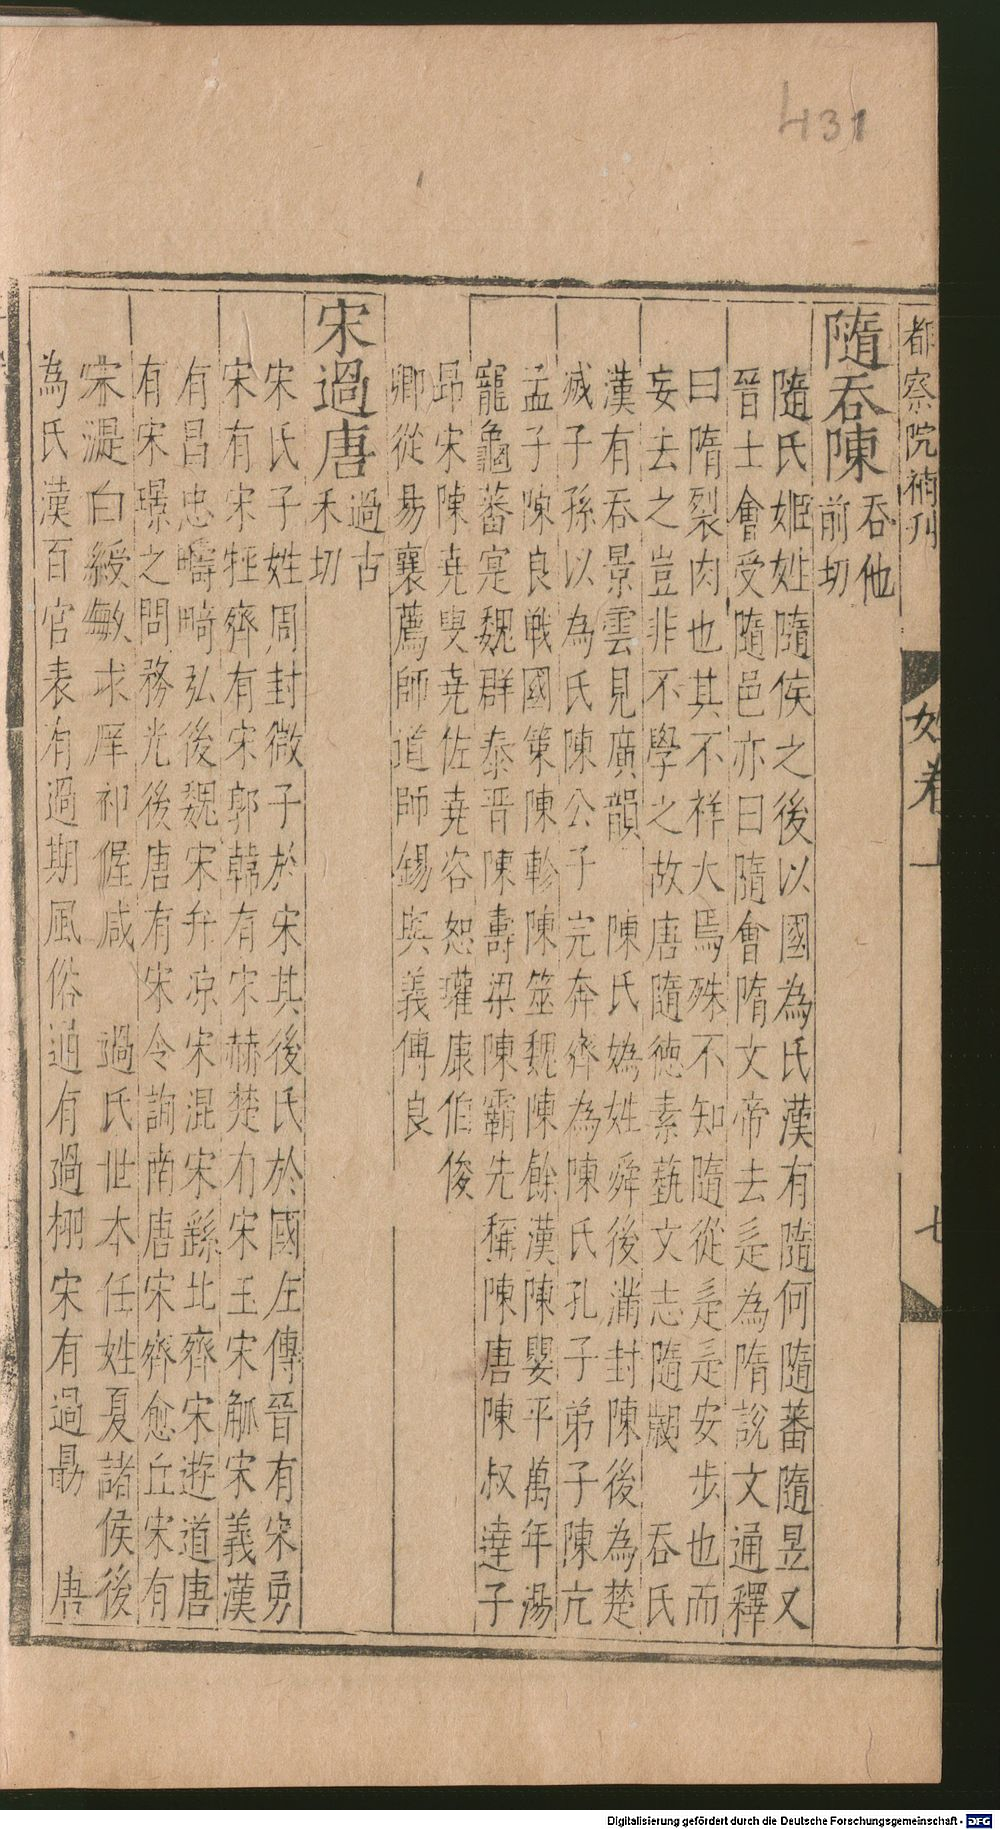 431
都察院補刊
姓卷上
七
隨吞陳 吞他前切
隨氏姬姓隨侯之後以國為氏漢有隨何隨蕃隨昱又
晉士會受隨邑亦曰隨會隋文帝去辵為隋說文通釋
曰隋裂肉也其不祥大焉殊不知隨從辵辵安步也而
妄去之豈非不學之故唐隨德素藝文志隨 吞氏
漢有吞景雲見廣韻 陳氏媯姓舜後滿封陳後為楚
滅子孫以為氏陳公子完奔齊為陳氏孔子弟子陳亢
孟子陳良戰國策陳軫陳筮魏陳餘漢陳嬰平萬年湯
寵龜蕃寔魏群泰晉陳壽梁陳霸先稱陳唐陳叔達子
昂宋陳堯叟堯佐堯咨恕瓘康伯俊
卿從易襄薦師道師錫與義傅良
宋過唐 過古禾切
宋氏子姓周封微子於宋其後氏於國左傳晉有宋勇
宋有宋牼齊有宋郭韓有宋赫楚有宋玉宋觚宋義漢
有昌忠疇畸弘後魏宋弁凉宋混宋繇北齊宋遊道唐
有宋璟之問務光後唐有宋令詢南唐宋齊愈丘宋有
宋湜白綬敏求庠祁偓咸 過氏世本任姓夏諸侯後
為氏漢百官表有過期風俗通有過栩宋有過勗 唐
Digitalisierung gefördert durch die Deutsche Forschungsgemeinschaft - DFG